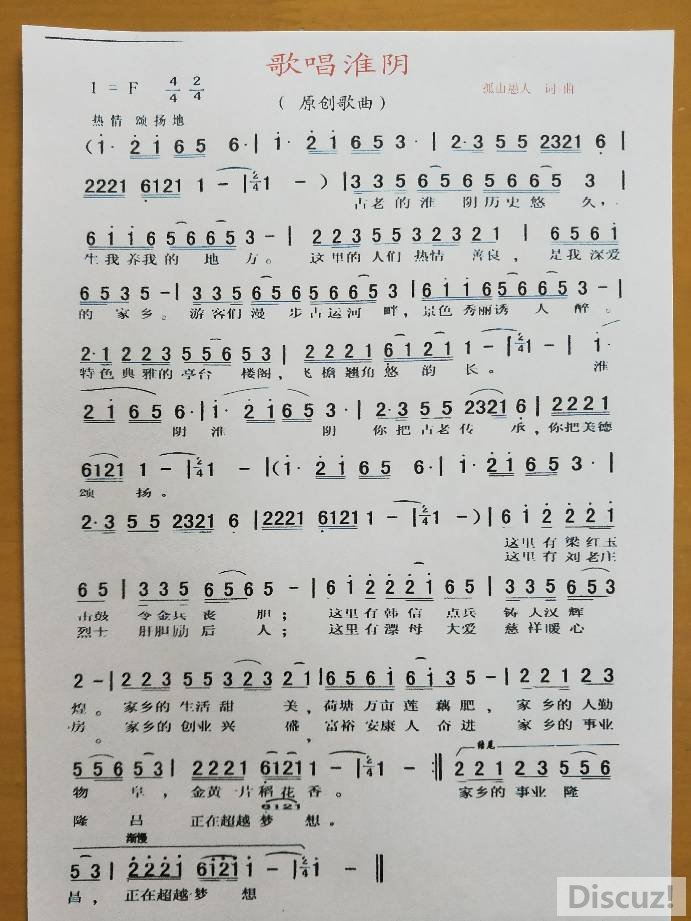 歌唱淮阴
1 = F 4/4 2/4
( 原创歌曲 )
孤山愚人 词 曲
热情 颂扬地
(1· 2 1 6 5 6·| 1· 2 1 6 5 3·| 2·3 5 5 2321 6|
2221 6121 1 - |2/4 1 - )|3 3 5 6 5 6 5 6 6 5 3|
古老的淮 阴历史悠 久,
6 1 1 6 5 6 6 5 3 - | 2 2 3 5 5 3 2 2 1 2 | 6 5 6 1
生我养我的 地 方。 这里的人们 热情 善良, 是我深爱
6 5 3 5 -| 3 3 5 6 5 6 5 6 6 5 3|6 1 1 6 5 6 5 3 -|
的 家乡。 游客们漫 步古运河 畔, 景色 秀丽诱 人 醉。
2·1 2 2 3 5 5 6 5 3| 2 2 2 1 6 1 2 1 1 -|2/4 1 -| 1·
特色典雅的亭台 楼阁, 飞檐翘角悠韵 长。 淮
2 1 6 5 6·|1· 2 1 6 5 3·|2·3 5 5 2321 6| 2221
阴 淮 阴 你把古老传 承, 你把美德
6121 1 -|2/4 1 -|(1· 2 1 6 5 6·| 1· 2 1 6 5 3·|
颂 扬。
2·3 5 5 2321 6 |2221 6121 1 -|2/4 1 -)| 6 1 2 2 2 1
这里有梁红玉
这里有刘老庄
6 5 | 3 3 5 6 5 3 - | 6 1 2 2 2 1 6 5| 3 3 5 6 5 3
击鼓 令金兵 丧 胆; 这里有韩信 点兵 铸人汉辉
烈士 肝胆励后 人; 这里有漂母 大爱 慈祥暖心
2 -| 2 2 3 5 5 3 2 3 2 1|6 5 6 1 6 1 6 5 3 5|2 2 2 2 3
煌。 家乡的生活甜 美, 荷塘万亩莲 藕 肥, 家 乡的人勤
房。 家乡的创业兴 盛, 富裕安康人 奋 进 家 乡的事业
结尾
5 5 6 5 3| 2221 6121 1 -|2/4 1 - :‖ 2 2 1 2 2 3 5 5 6
物 阜, 金黄一片稻花香。 家乡的事业 隆
6121
隆 昌 正在超越梦 想。
渐慢
5 3| 2 2 2 1 6121 1 -|2/4 1 - ‖
昌, 正在超越·梦 想
Discuz!